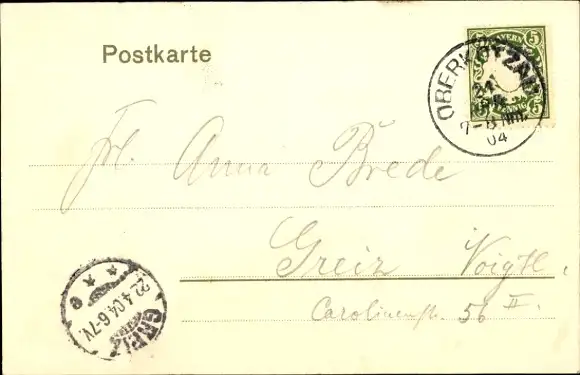 Postkarte
BAYERN
5 5
5 PFENNIG 5
OBERKOTZAU
21
7-8 NM.
04
Frl. Anna Brede
Greiz Voigtl.
Carolinenstr. 56 II.
GREIZ
22.4.04.6-7V.
* * e